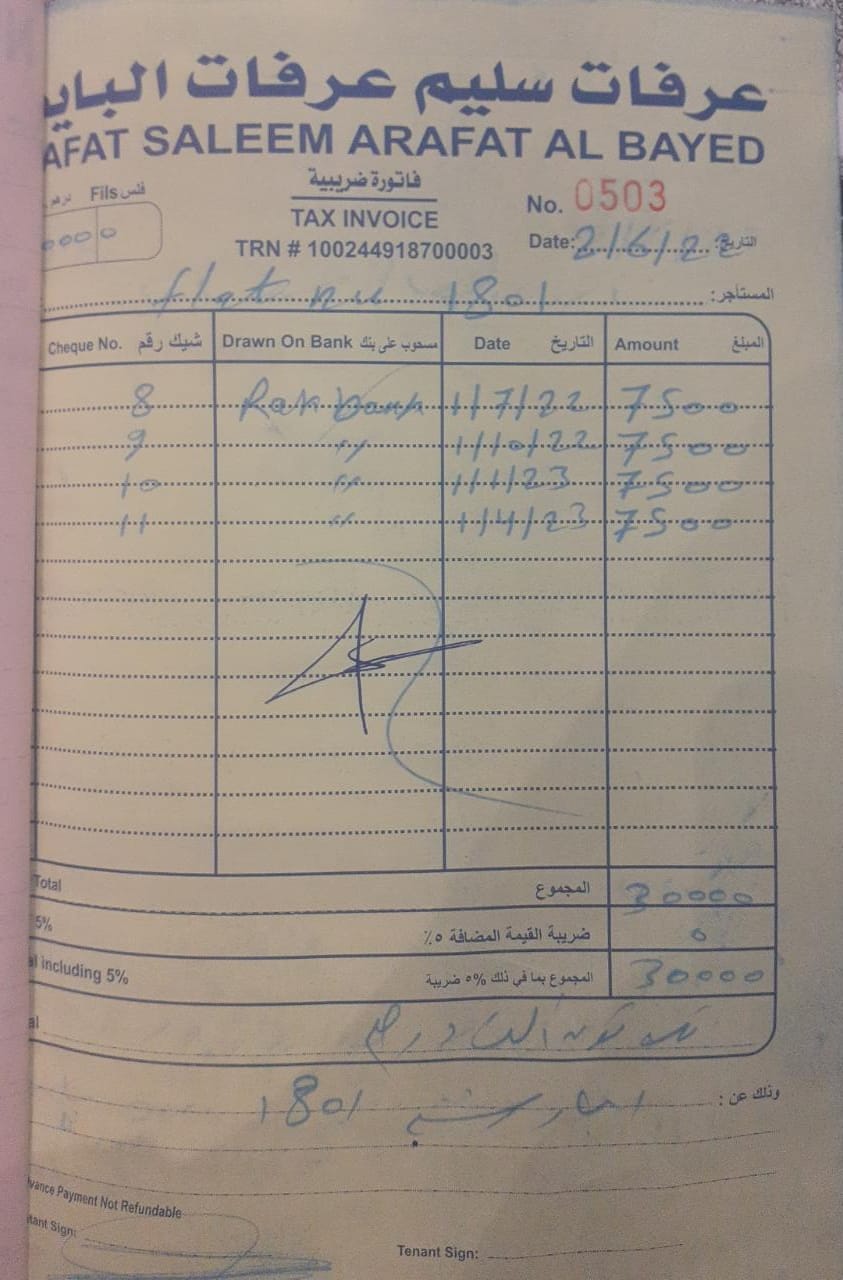 عرفات سليم عرفات الباي
AFAT SALEEM ARAFAT AL BAYED
فاتورة ضريبية
TAX INVOICE
TRN # 100244918700003
No. 0503
Date: 2/6/22 التاريخ:
درهم Fils فلس
0000
المستأجر: flat nu 1801
Cheque No. شيك رقم Drawn On Bank مسحوب على بنك Date التاريخ Amount المبلغ
8 Rak bank 1/7/22 7500
9 " 1/10/22 7500
10 " 1/1/23 7500
11 " 1/4/23 7500
Total المجموع 30000
5% ضريبة القيمة المضافة ٥٪ 0
al including 5% المجموع بما في ذلك 5% ضريبة 30000
al
الف درهم
وذلك عن: 1801
vance Payment Not Refundable
tant Sign:
Tenant Sign: